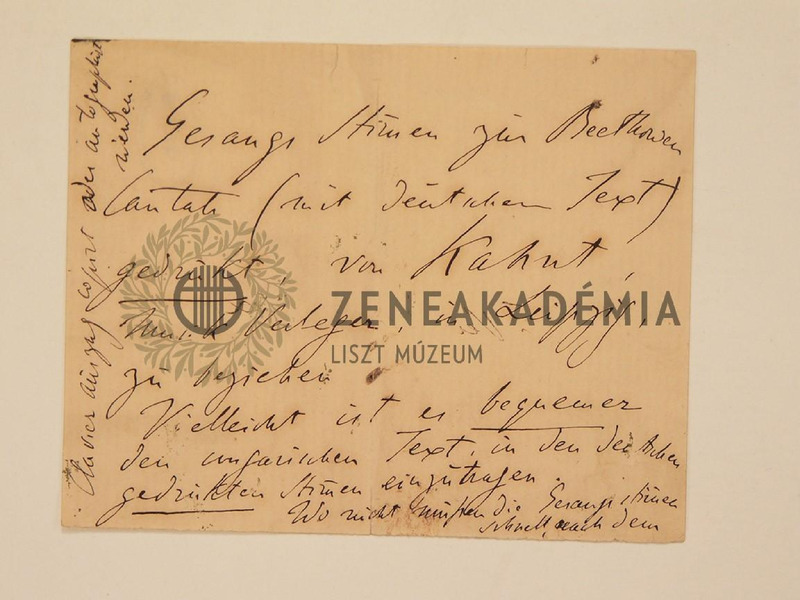 Gesangs Stimen zur Beethoven
Cantate (mit deutschem Text)
gedrukt, von Kahnt,
Musik Verleger, in Leipzig,
zu beziehen
Vielleicht ist es bequemer
den ungarischen Text, in den deutschen
gedrukten Stimen einzutragen.
Wo nicht müssen die Gesangstimen
schnell, nach dem
Clavier auszug copirt oder autographirt
werden.
ZENEAKADÉMIA
LISZT MÚZEUM